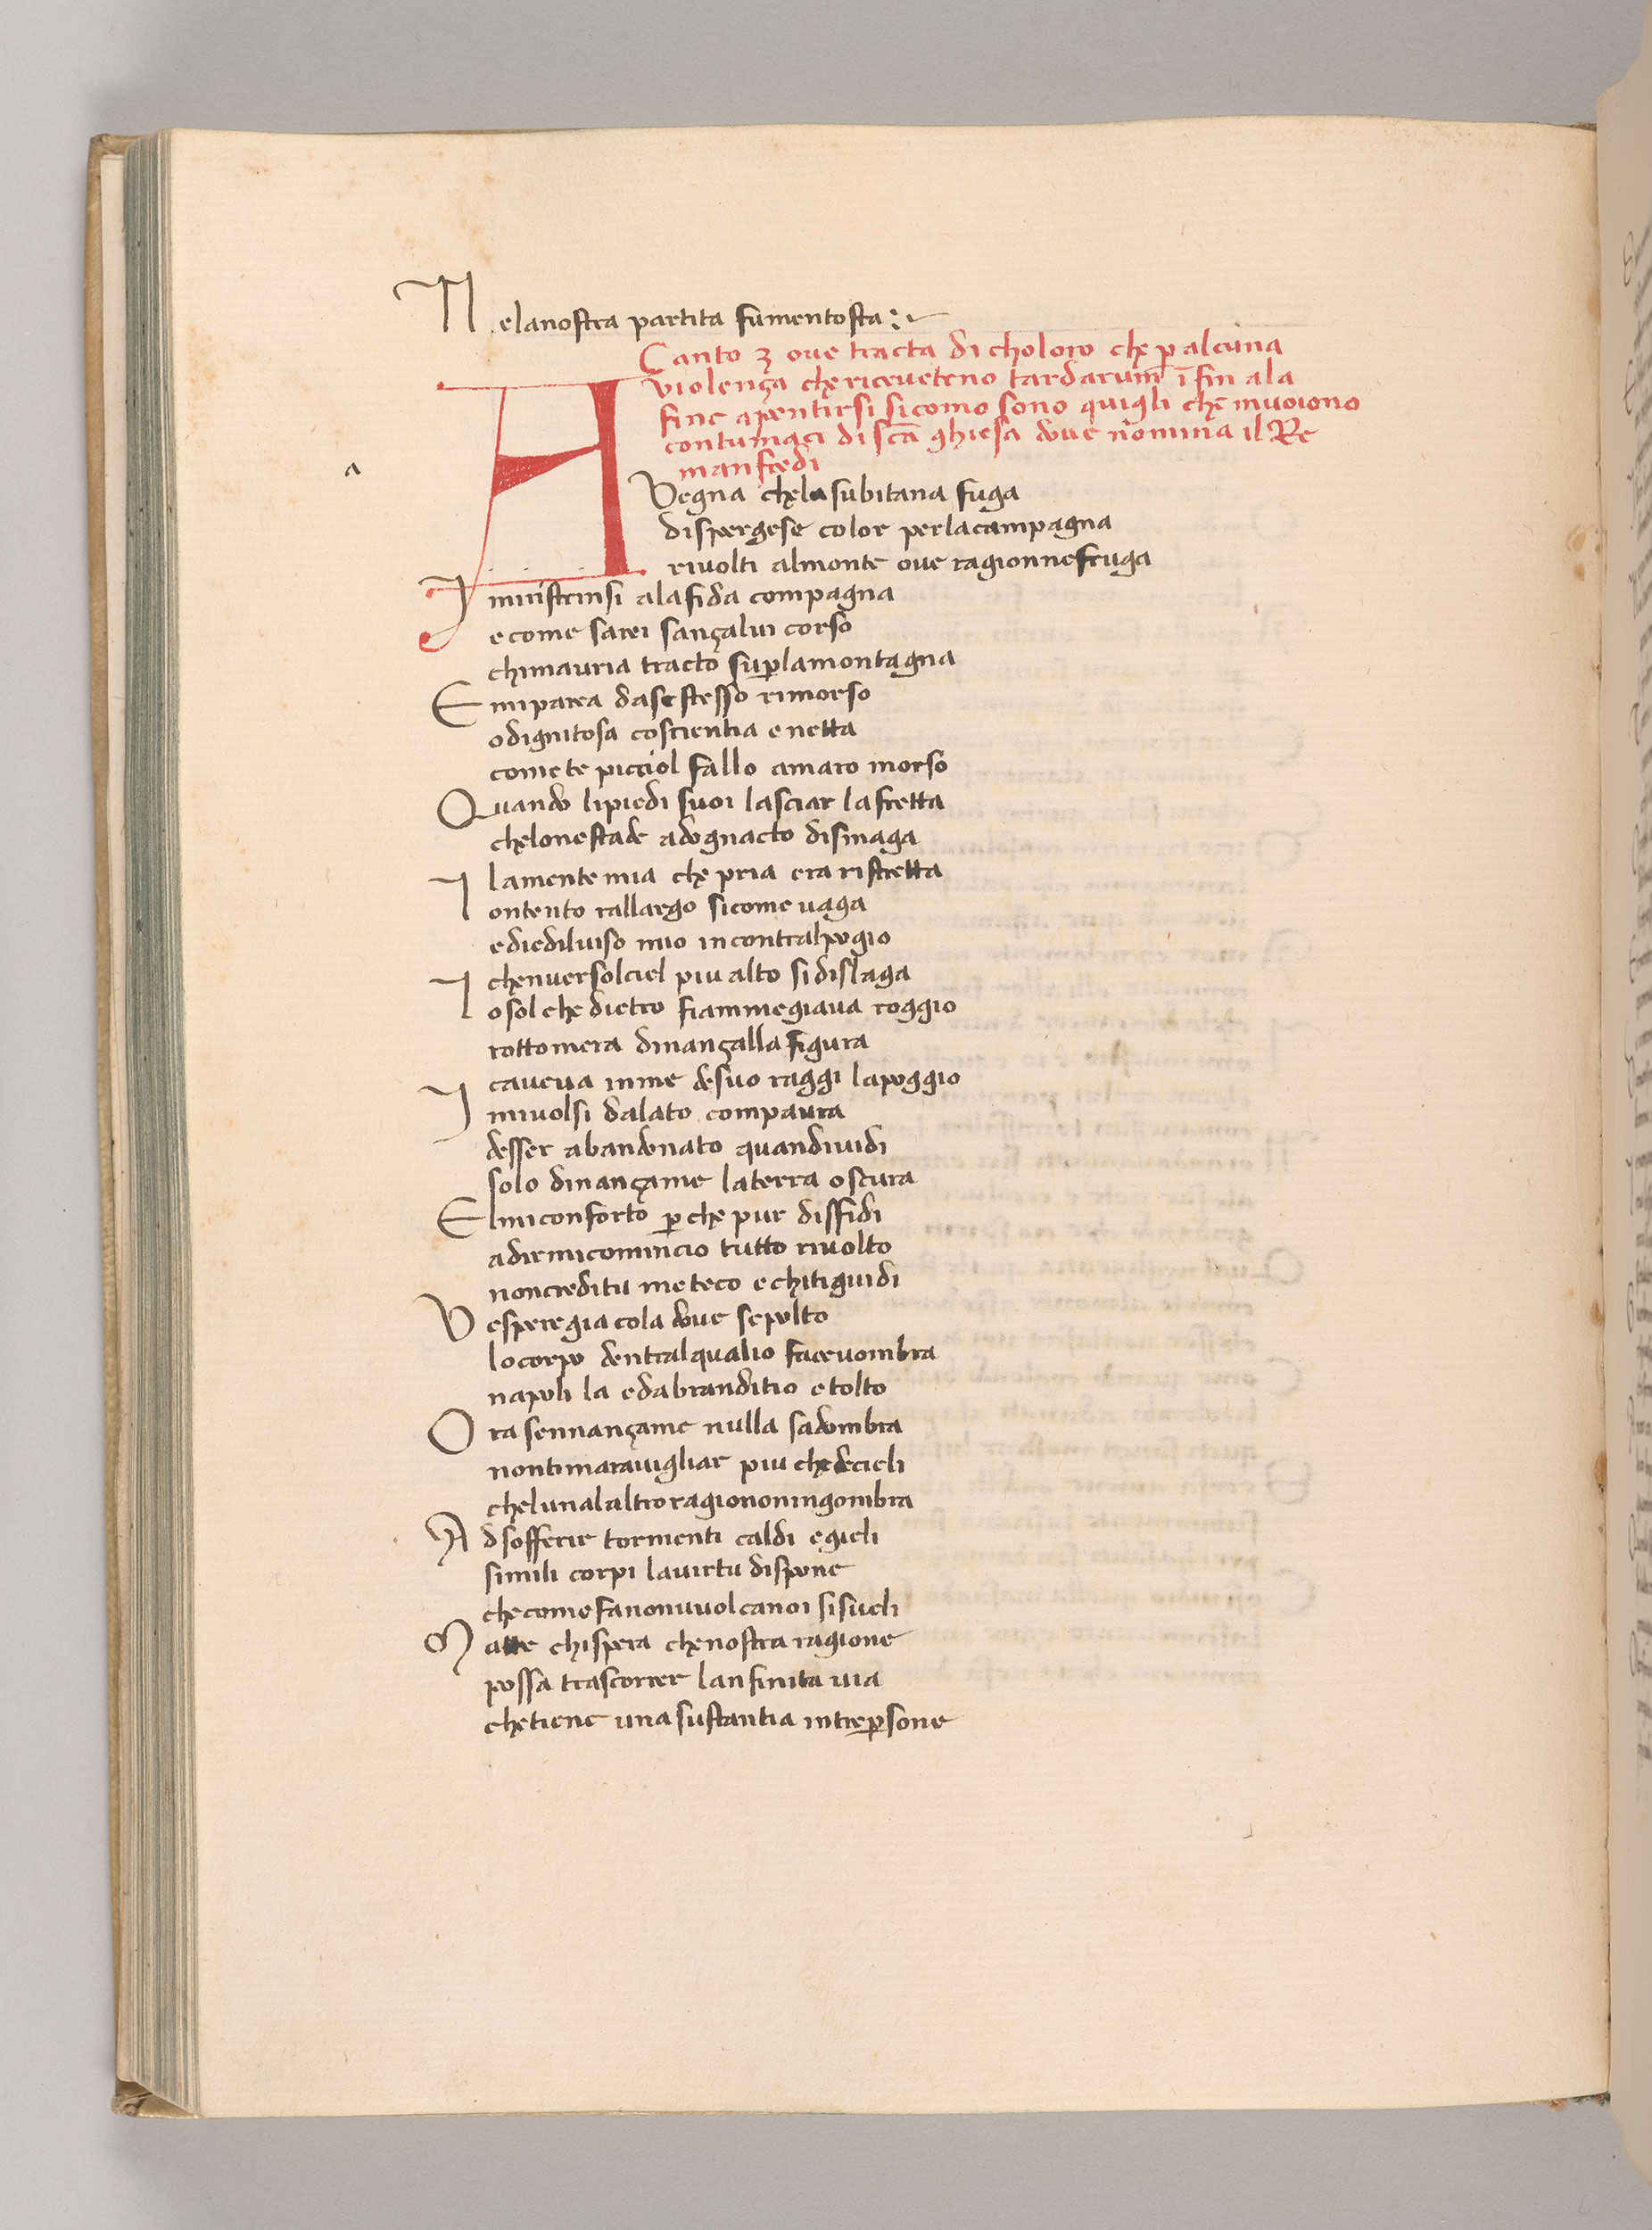 Nelanostra partita fumentosta:
Canto 3 oue tracta di choloro che p alcuna
violença chericeueteno tardarum̄ ī fin ala
fine apentirsi sicomo sono quigli che muoiono
contumaci di sc̄a ghiesa doue nomina il Re
manfredi
a
AVegna chela subitana fuga
dispergese color perlacampagna
riuolti almonte oue ragionnefruga
Jmiristrinsi alafida compagna
ecome sarei sançalui corso
chimauria tracto suꝑlamontagna
Emiparea dasestesso rimorso
odignitosa coscientia enetta
comete picciol fallo amaro morso
Quando lipiedi suoi lasciar lafretta
chelonestade adognacto dismaga
lamentemia che pria era ristretta
Jontento rallargo sicome uaga
ediedilviso mio incontralpogio
chenuersolciel piu alto sidislaga
Josol che dietro fiammegiaua roggio
rottomera dinançalla figura
caueua inme desuo raggi lapoggio
Jmiuolsi dalato compaura
desser abandonato quandiuidi
solo dinançame laterra oscura
Elmiconforto ꝑche pur diffidi
adirmicomincio tutto riuolto
noncreditu meteco echitiguidi
Vesperegia cola doue sepolto
locorpo dentralqualio faceuombra
napoli la edabranditio etolto
Ora sennançame nulla sadombra
nontimarauigliar piu chedecieli
chelunalaltroragiononingombra
Adsofferir tormenti caldi egieli
simili corpi lauirtu dispone
checomefanonuuolcanoi sisueli
Matte chispera chenostra ragione
possa trascorrer lanfinita uia
chetiene una sustantia intreꝑsone